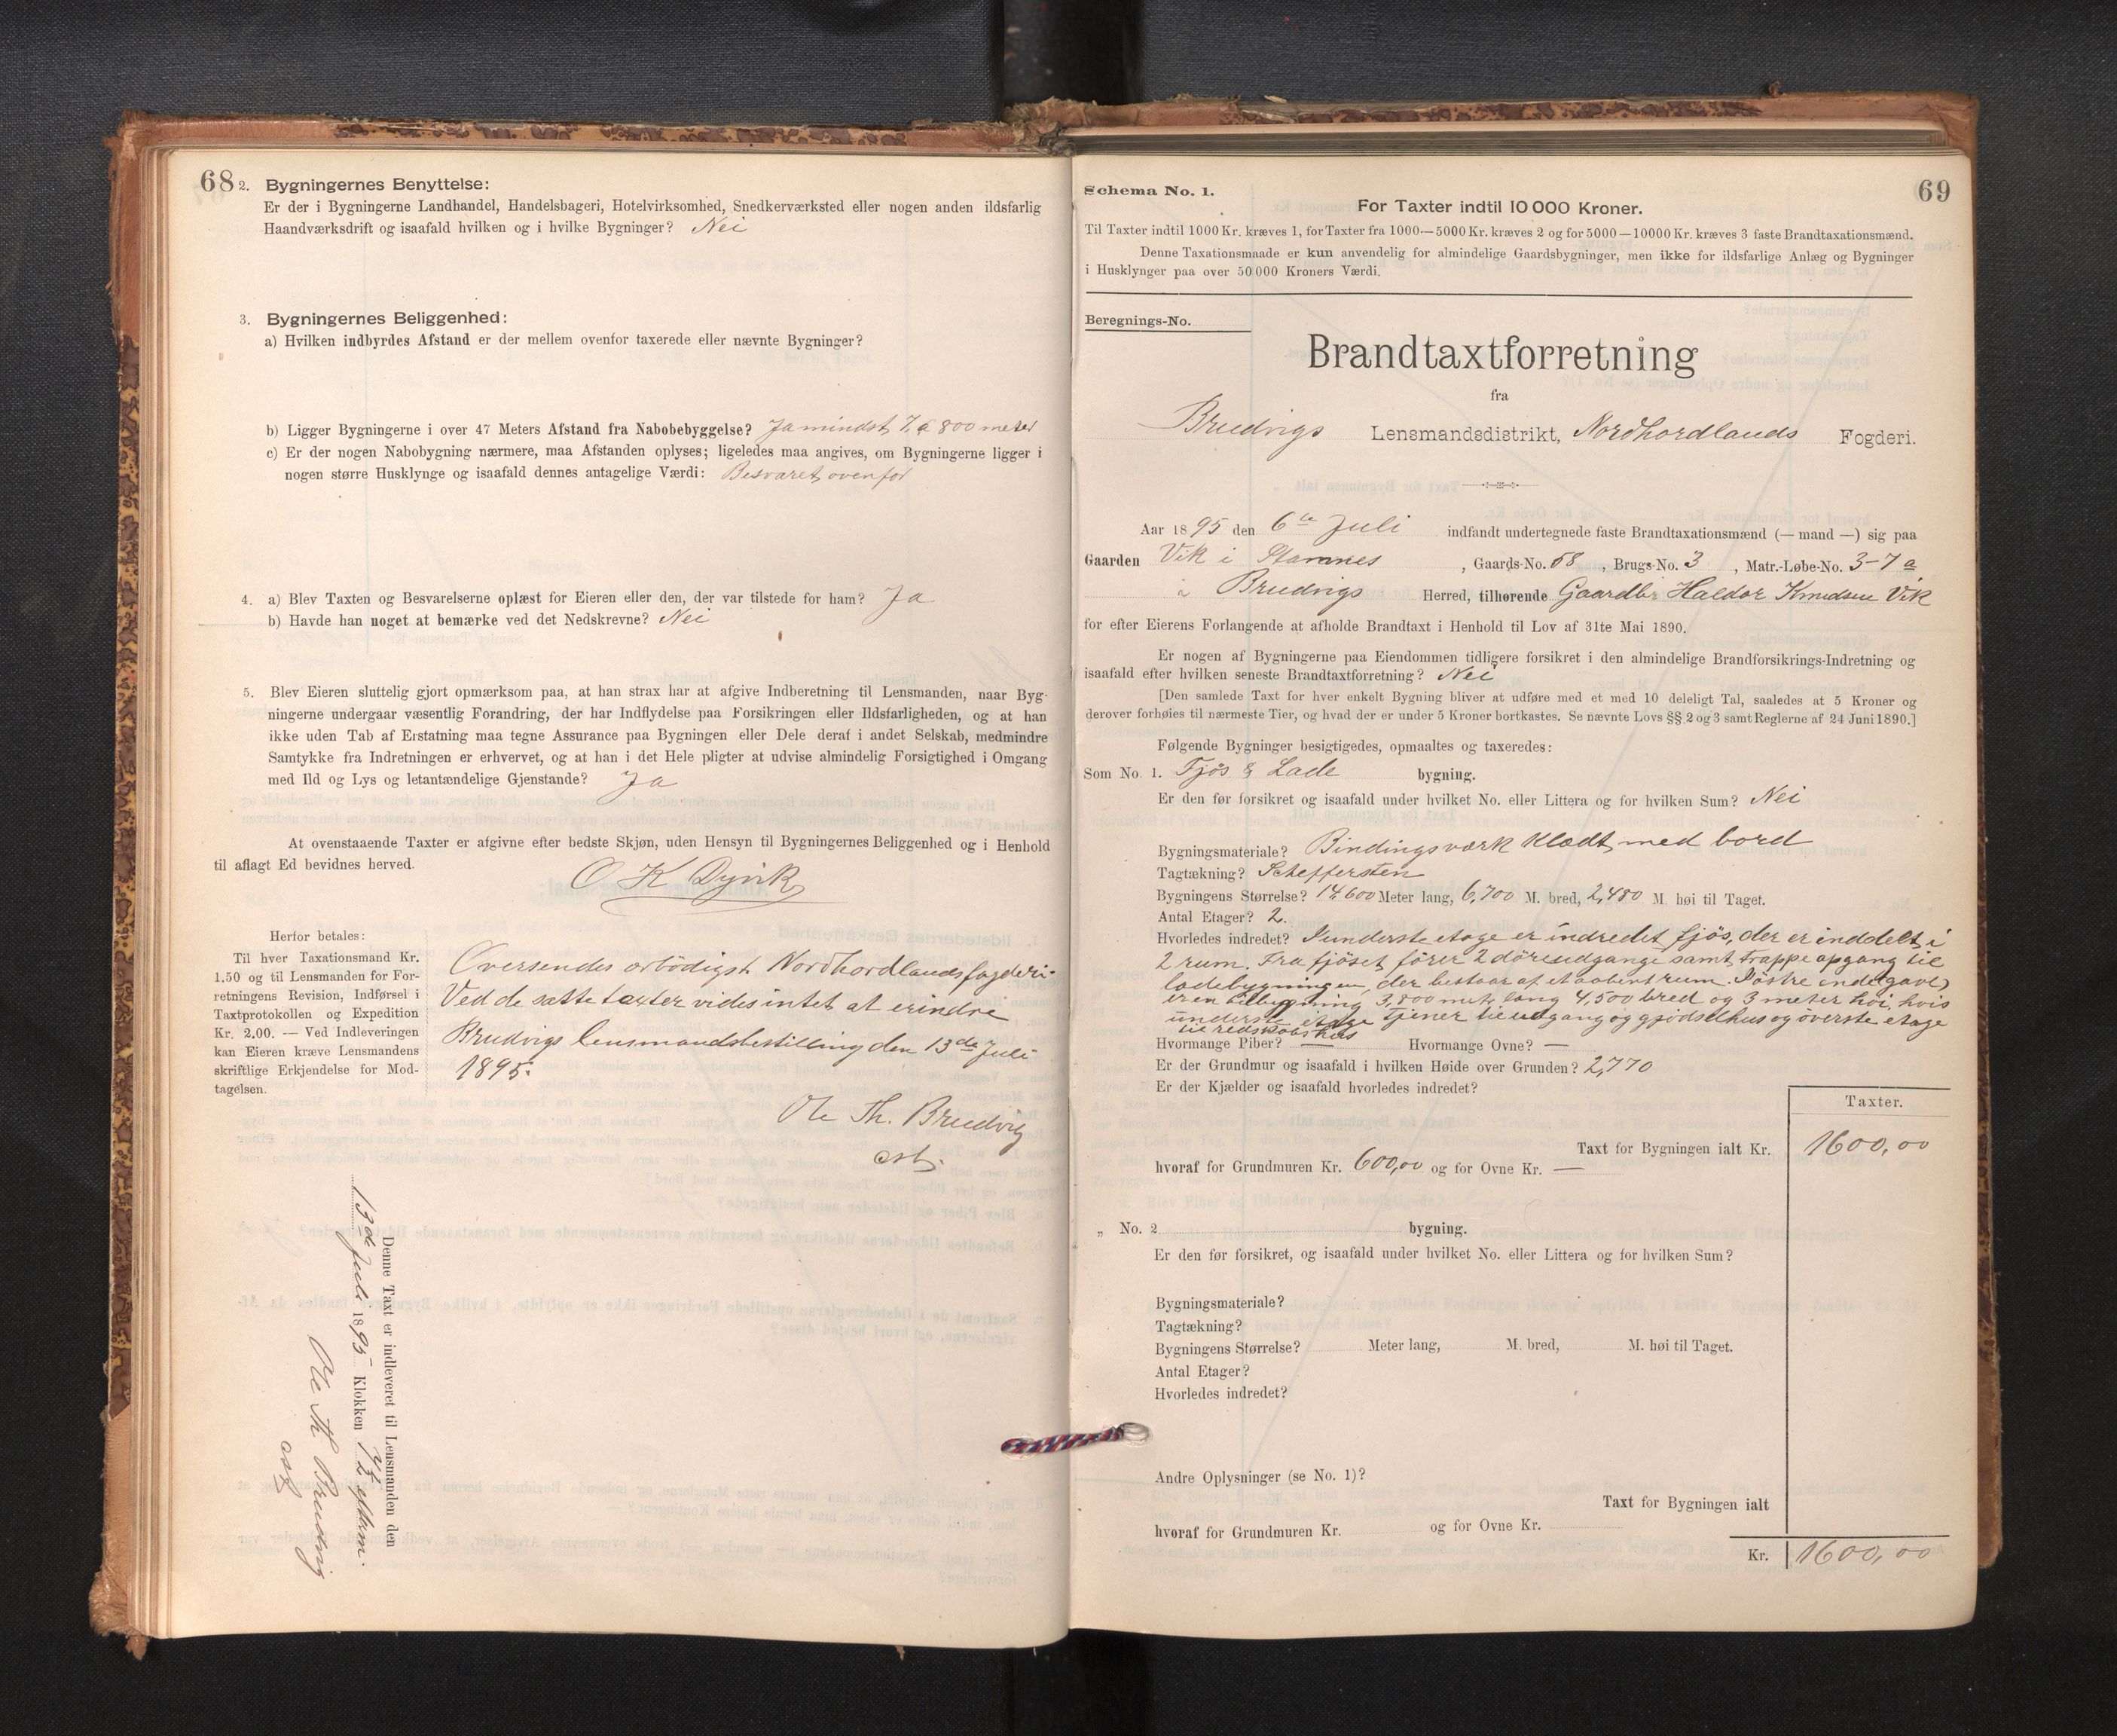 68
2. Bygningernes Benyttelse:
Er der i Bygningerne Landhandel, Handelsbageri, Hotelvirksomhed, Snedkerværksted eller nogen anden ildsfarlig
Haandværksdrift og isaafald hvilken og i hvilke Bygninger? Nei
3. Bygningernes Beliggenhed:
a) Hvilken indbyrdes Afstand er der mellem ovenfor taxerede eller nævnte Bygninger?
b) Ligger Bygningerne i over 47 Meters Afstand fra Nabobebyggelse? Ja mindst 7 a 800 meter
c) Er der nogen Nabobygning nærmere, maa Afstanden oplyses; ligeledes maa angives, om Bygningerne ligger i
nogen større Husklynge og isaafald dennes antagelige Værdi: Besvaret ovenfor
4. a) Blev Taxten og Besvarelserne oplæst for Eieren eller den, der var tilstede for ham? Ja
b) Havde han noget at bemærke ved det Nedskrevne? Nei
5. Blev Eieren sluttelig gjort opmærksom paa, at han strax har at afgive Indberetning til Lensmanden, naar Byg-
ningerne undergaar væsentlig Forandring, der har Indflydelse paa Forsikringen eller Ildsfarligheden, og at han
ikke uden Tab af Erstatning maa tegne Assurance paa Bygningen eller Dele deraf i andet Selskab, medmindre
Samtykke fra Indretningen er erhvervet, og at han i det Hele pligter at udvise almindelig Forsigtighed i Omgang
med Ild og Lys og letantændelige Gjenstande? Ja
At ovenstaaende Taxter er afgivne efter bedste Skjøn, uden Hensyn til Bygningernes Beliggenhed og i Henhold
til aflagt Ed bevidnes herved.
O K Dyvik
Herfor betales:
Til hver Taxationsmand Kr.
1,50 og til Lensmanden for For-
retningens Revision, Indførsel i
Taxtprotokollen og Expedition
Kr. 2.00. — Ved Indleveringen
kan Eieren kræve Lensmandens
skriftlige Erkjendelse for Mod-
tagelsen.
Oversendes ærbödigst Nordhordlands fogderi.
Ved de satte taxter vides intet at erindre
Brudvigs lensmandsbestilling den 13de Juli
1895.
Ole Th. Brudvig
Denne Taxt er indleveret til Lensmanden den
13de Juli 1895 Klokken 12 efterm.
Ole Th Brudvig
69
Schema No. 1.
For Taxter indtil 10000 Kroner.
Til Taxter indtil 1000 Kr. kræves 1, for Taxter fra 1000—5000 Kr. kræves 2 og for 5000—10000 Kr. kræves 3 faste Brandtaxationsmænd.
Denne Taxationsmaade er kun anvendelig for almindelige Gaardsbygninger, men ikke for ildsfarlige Anlæg og Bygninger
i Husklynger paa over 50000 Kroners Værdi.
Beregnings-No.
Brandtaxtforretning
fra
Brudvigs Lensmandsdistrikt, Nordhordlands Fogderi.
Aar 1895 den 6te Juli indfandt undertegnede faste Brandtaxationsmænd (— mand —) sig paa
Gaarden Vik i Stamnes, Gaards-No. 68, Brugs-No. 3, Matr.-Løbe-No. 3-7 a
i Brudvigs Herred, tilhørende Gaardbr Haldor Knudsen Vik
for efter Eierens Forlangende at afholde Brandtaxt i Henhold til Lov af 31te Mai 1890.
Er nogen af Bygningerne paa Eiendommen tidligere forsikret i den almindelige Brandforsikrings-Indretning og
isaafald efter hvilken seneste Brandtaxtforretning? Nei
[Den samlede Taxt for hver enkelt Bygning bliver at udføre med et med 10 deleligt Tal, saaledes at 5 Kroner og
derover forhøies til nærmeste Tier, og hvad der er under 5 Kroner bortkastes. Se nævnte Lovs §§ 2 og 3 samt Reglerne af 24 Juni 1890.]
Følgende Bygninger besigtigedes, opmaaltes og taxeredes:
Som No. 1. Fjös & Lade bygning.
Er den før forsikret og isaafald under hvilket No. eller Littera og for hvilken Sum? Nei
Bygningsmateriale? Bindingsværk klædt med bord
Tagtækning? Skeffersten
Bygningens Størrelse? 14,600 Meter lang, 6,700 M. bred, 2,480 M. høi til Taget.
Antal Etager? 2.
Hvorledes indredet? I underste etage er indredet fjös, der er inddelt i
2 rum. Fra fjöset förer 2 döreudgange samt trappeopgang til
ladebygningen, der bestaar af et aabent rum. I östre endegavl
er en tilbygning 3,800 mtr. lang 4,500 bred og 3 meter höi, hvis
underste etage tjener til udgang og gjödselhus og överste etage
til redskabshus
Hvormange Piber? — Hvormange Ovne? —
Er der Grundmur og isaafald i hvilken Høide over Grunden? 2,770
Er der Kjælder og isaafald hvorledes indredet?
Taxter.
Taxt for Bygningen ialt Kr. 1600,00
hvoraf for Grundmuren Kr. 600,00 og for Ovne Kr. —
„ No. 2 bygning.
Er den før forsikret, og isaafald under hvilket No. eller Littera og for hvilken Sum?
Bygningsmateriale?
Tagtækning?
Bygningens Størrelse? Meter lang, M. bred, M. høi til Taget.
Antal Etager?
Hvorledes indredet?
Andre Oplysninger (se No. 1)?
Taxt for Bygningen ialt
hvoraf for Grundmuren Kr. og for Ovne Kr.
Kr. 1600,00